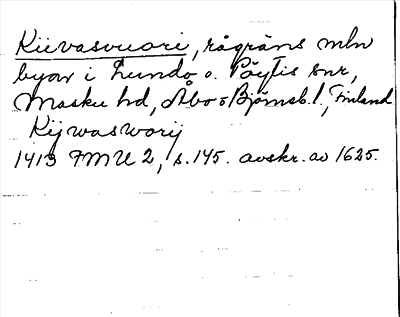 Kiivasvuori, rågräns mln
byar i Lundo o. Pöytis snr,
Masku hd, Åbo o Björneb. l., Finland
Kijwasworij
1413 FMU 2, s. 145. avskr. av 1625.